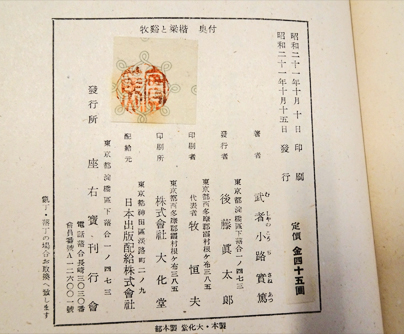 付奥 楷梁と谿牧
昭和二十一年十月十日 印刷
昭和二十一年十月十五日 發行
定價 金四十五圓
著者 武者小路實篤
むしゃのこうぢさねあつ
東京都淀橋區下落合一ノ四七三
發行者 後藤眞太郎
東京都西多摩郡調布村根ケ布三八五
印刷者 代表者 牧恒夫
東京都西多摩郡調布村根ケ布三八五
印刷所 株式會社 大化堂
東京都神田區淡路町二ノ九
配給元 日本出版配給株式會社
東京都淀橋區下落合一ノ四七三
發行所 座右寶刊行會
電話落合長崎三〇三〇番
會員番號A一二六〇〇一號
亂丁・落丁の場合お取換へ致します
製本・大化堂 製本部